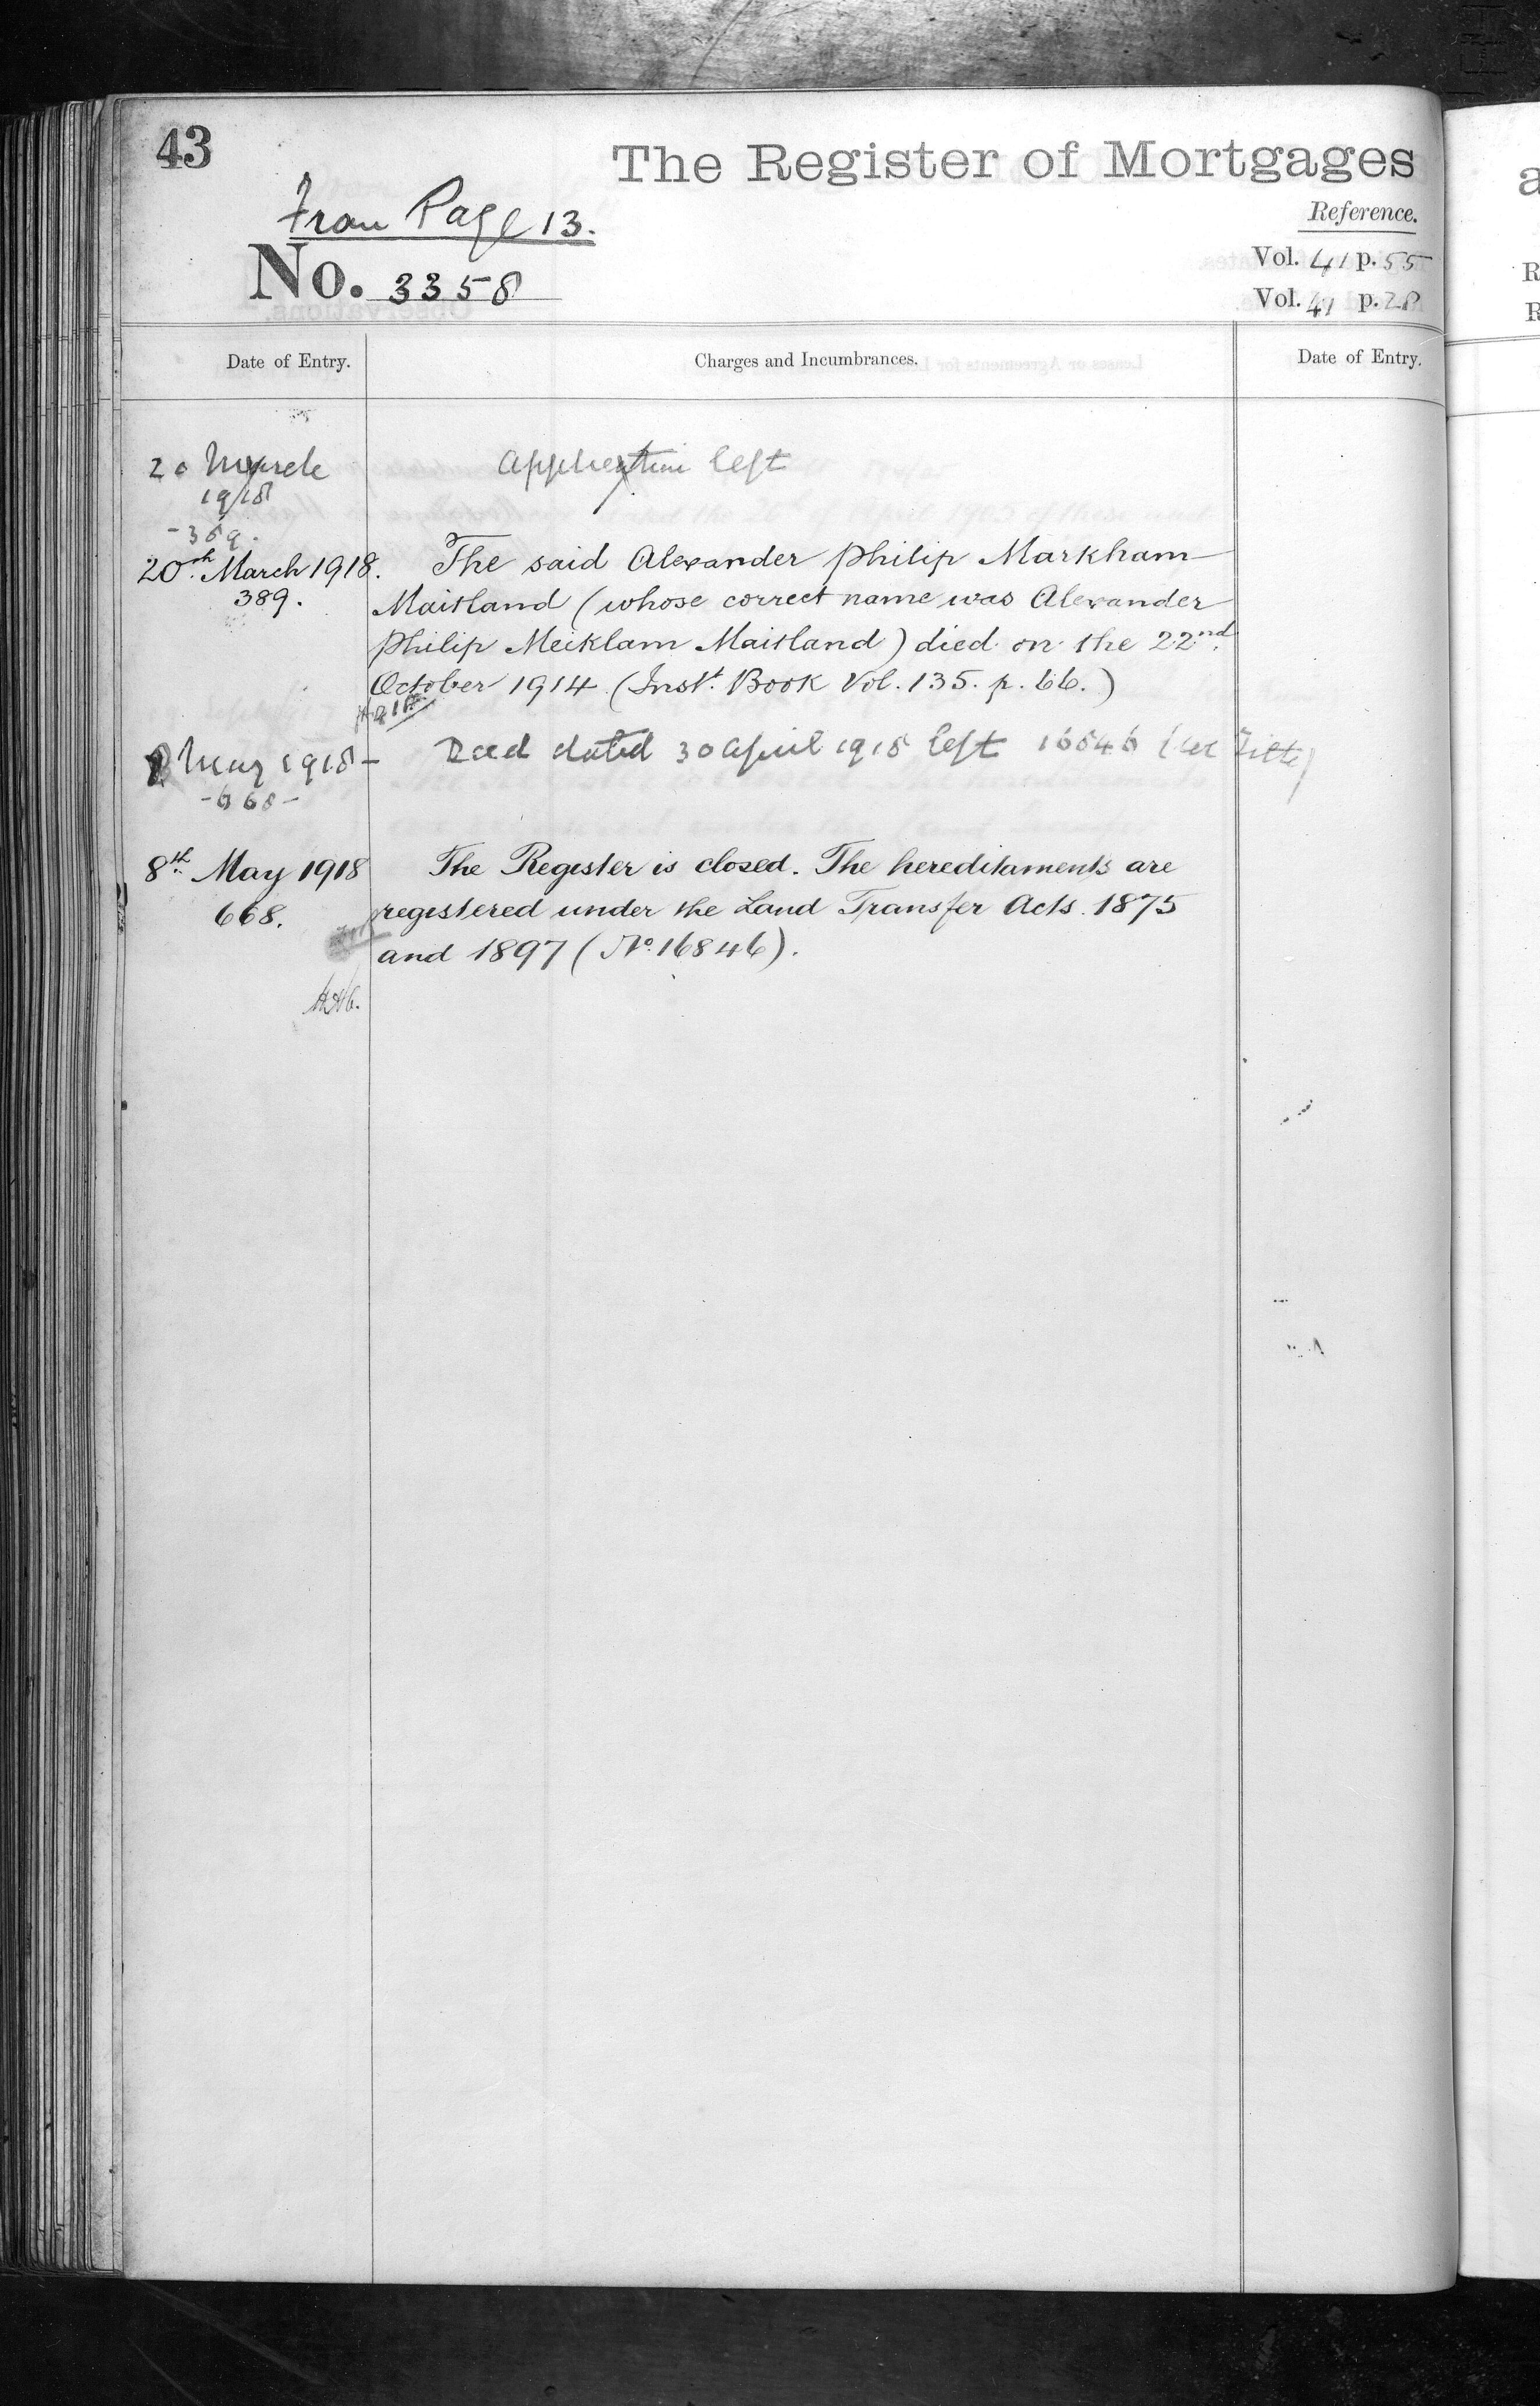 43
The Register of Mortgages
From Page 13.
Reference.
No. 3358
Vol. 41 p. 55
Vol. 41 p. 28
Date of Entry.
Charges and Incumbrances.
Date of Entry.
20 March
1918
Application left
-389.
20th March 1918.
389.
The said Alexander Philip Markham
Maitland (whose correct name was Alexander
Philip Meiklam Maitland) died on the 22nd
October 1914 (Inst. Book Vol. 135. p. 66.)
8 May 1918-
-668-
Deed dated 30 April 1918 left 16846 ( Title)
8th May 1918
668.
The Register is closed. The hereditaments are
registered under the Land Transfer Acts. 1875
and 1897 (No. 16846).